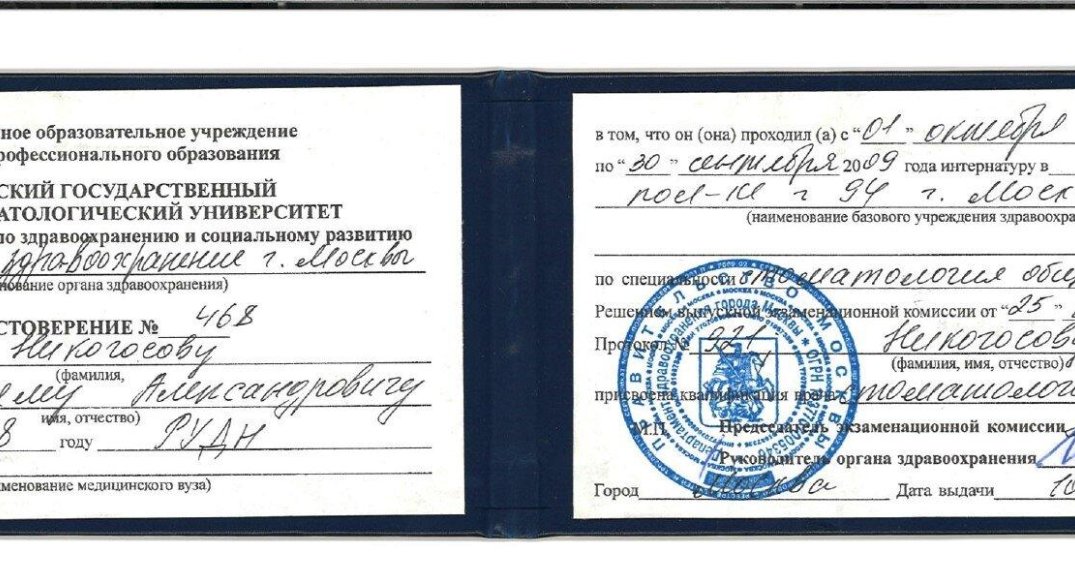 ное образовательное учреждение
рофессионального образования
СКИЙ ГОСУДАРСТВЕННЫЙ
АТОЛОГИЧЕСКИЙ УНИВЕРСИТЕТ
по здравоохранению и социальному развитию
здравоохранение г. Москвы
нование органа здравоохранения)
СТОВЕРЕНИЕ № 468
Никогосову
(фамилия,
ему Александровичу
имя, отчество)
8 году РУДН
именование медицинского вуза)
в том, что он (она) проходил (а) с “01” октября
по “30” сентября 2009 года интернатуру в
пол-ке г 94 г. Моск
(наименование базового учреждения здравоохра
по специальности стоматология общ
Решением выпускной экзаменационной комиссии от “25”
Протокол № 221 Никогосов
(фамилия, имя, отчество)
присвоена квалификация врача стоматолог
М.П. Председатель экзаменационной комиссии
Руководитель органа здравоохранения
Город Москва Дата выдачи 10
ПРАВИТЕЛЬСТВО МОСКВЫ
Департамент здравоохранения города Москвы * ОГРН